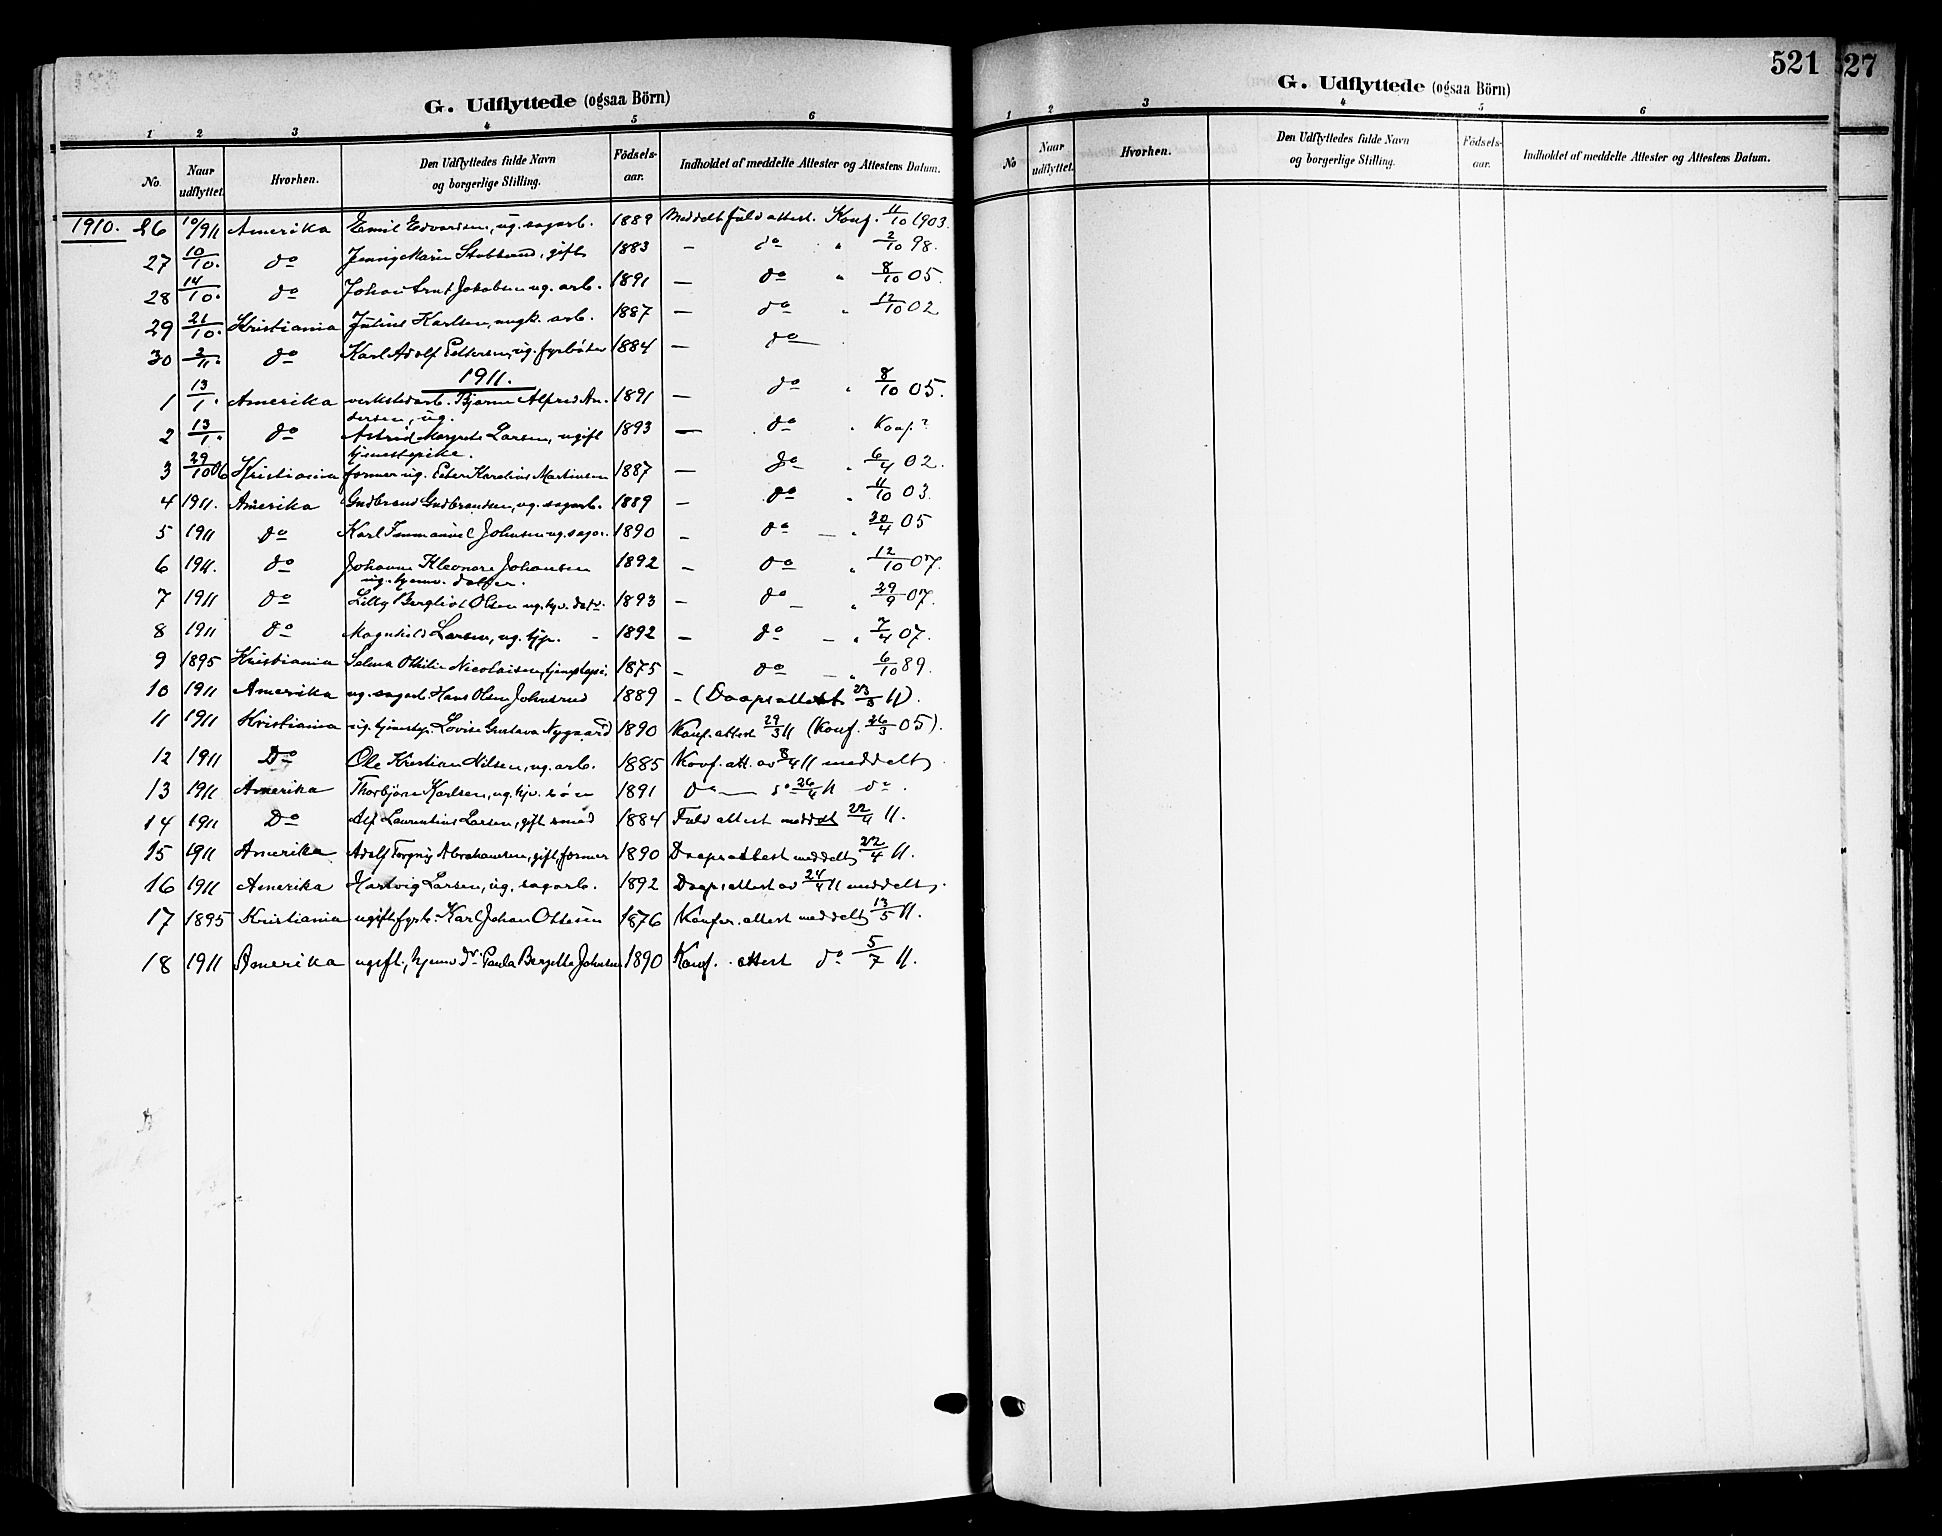 G. Udflyttede (ogsaa Börn)
1 2 3 4 5 6
No. Naar udflyttet. Hvorhen. Den Udflyttedes fulde Navn og borgerlige Stilling. Födsels-aar. Indholdet af meddelte Attester og Attestens Datum.
1910. 26 10/9 11 Amerika Emil Edvardsen, ug. sagarb. 1889 Meddelt fuld attest. Konf. 11/10 1903.
27 10/10. do Jenny Marie, gift 1883 — do " 2/10 98.
28 14/10. do Johan Arnt Jakobsen ug. arb. 1891 — do " 8/10 05.
29 21/10. Kristiania Julius Karlsen, ungk. arb. 1887 — do " 12/10 02
30 2/11. do Karl Adolf Pettersen, ug. fyrbøter 1884 — do
1911.
1 13/1. Amerika verkstedarb. Bjarne Alfred An- 1891 — do " 8/10 05.
dersen, ug.
2 13/1. do Astrid Margrete Larsen, ugift 1893 — do " Konf?
tjenestepike.
3 29/10 06 Kristiania former ug. Peter Karelius Martinsen 1887 — do " 6/4 02.
4 1911. Amerika Gudbrand Gudbrandsen, ug. sagarb. 1889 — do " 11/10 03.
5 1911 do Karl Emmanuel Johnsen ug. sagar. 1890 — do — " 30/4 05
6 1911. do Johanne Kleonore Johansen 1892 — do " 12/10 07.
ug. hjemv. datter.
7 1911 do Lilly Bergliot Olsen ug. hjv. datr. 1893 — do — " 29/9 07.
8 1911 do Magnhild Larsen, ug. tjp. — 1892 — do — " 7/4 07.
9 1895 Kristiania Selma Othilie Nicolaisen, tjenestepi. 1875 — do — " 6/10 89.
10 1911 Amerika ug. sagarb. Hans Olsen Johnsrud 1889 — (Daapsattest 23/3 11).
11 1911 Kristiania ug. tjenestp. Lovise Gustava Nygaard 1890 Konf. attest 29/3 11 (Konf. 26/3 05).
12 1911 Do Ole Kristian Nilsen, ug. arb. 1885 Konf. att. av 8/4 11 meddelt.
13 1911 Amerika Thorbjørn Karlsen, ug. hjv. søn 1891 do — do 26/4 11 do.
14 1911 Do Alf Laurentius Larsen, gift smed 1884 Fuld attest meddelt 22/4 11.
15 1911 Amerika Adolf Torgny Abrahamsen, gift, former 1890 Daapsattest meddelt 22/4 11.
16 1911 Amerika Hartvig Larsen, ug. sagarb. 1892 Daapsattest av 24/4 11 meddelt.
17 1895 Kristiania ugift fyrb. Karl Johan Ottesen 1876 Konfir. attest meddelt 13/5 11.
18 1911 Amerika ugift, hjemv dr. Paula Bergitte Johnsen 1890 Konf. attest do 5/7 11.
521
27
G. Udflyttede (ogsaa Börn)
1 2 3 4 5 6
No Naar udflyttet. Hvorhen. Den Udflyttedes fulde Navn og borgerlige Stilling. Födsels-aar. Indholdet af meddelte Attester og Attestens Datum.